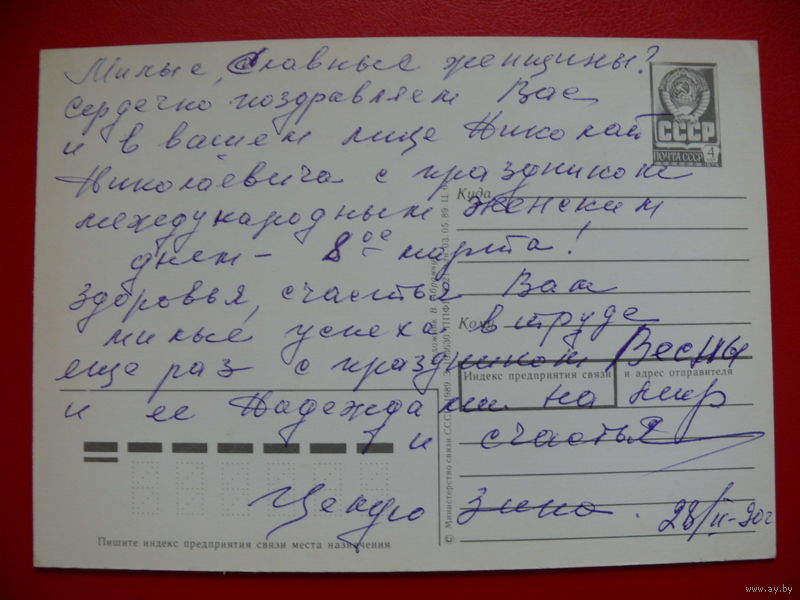 Милые, Славные женщины!
сердечно поздравляем Вас
и в вашем лице Николай
Николаевича с праздником
международным женским
днем - 8ое марта!
Здоровья, счастья Вам
милые успеха в труде
еще раз с праздником Весны
и ее Надеждами на мир
и счастья
Зина. 28/II-90г
СССР
ПОЧТА СССР 4
Куда
Кому
Индекс предприятия связи и адрес отправителя
Пишите индекс предприятия связи места назначения
© Министерство связи СССР, 1989.
www.ay.by